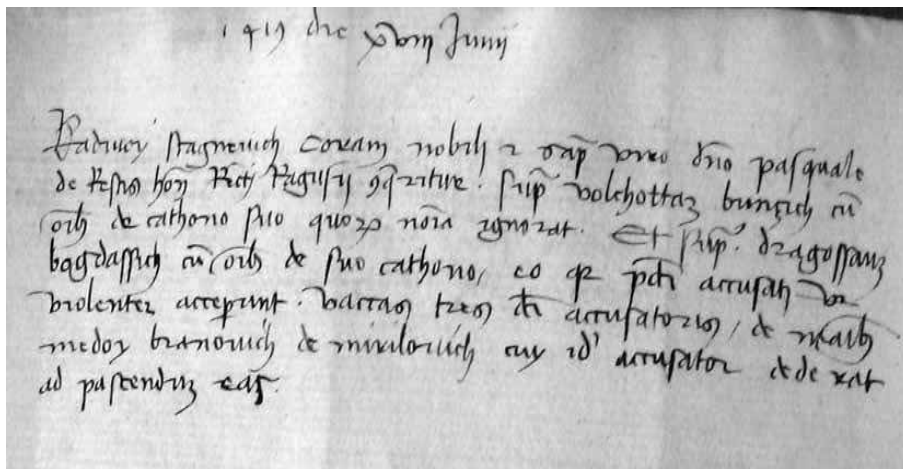 1419 die xviii Junii
Radivoy stagnevich coram nobili z sapi viro dno pasquale
de Restis hon Rect Ragusii conqritur. sup volchottaz bunçich cu
oib de cathono suo quorz noia ignorat. Et sup. dragossauz
bogdassich cu oib de suo cathono, eo qz pdti accusati
violenter acceperunt. vaccas tres dti accusatoris, de
medoy branovich de cuy id accusator dederat
ad pascenduz eas